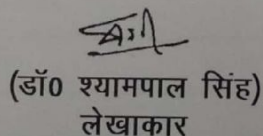 (डॉ0 श्यामपाल सिंह)
लेखाकार